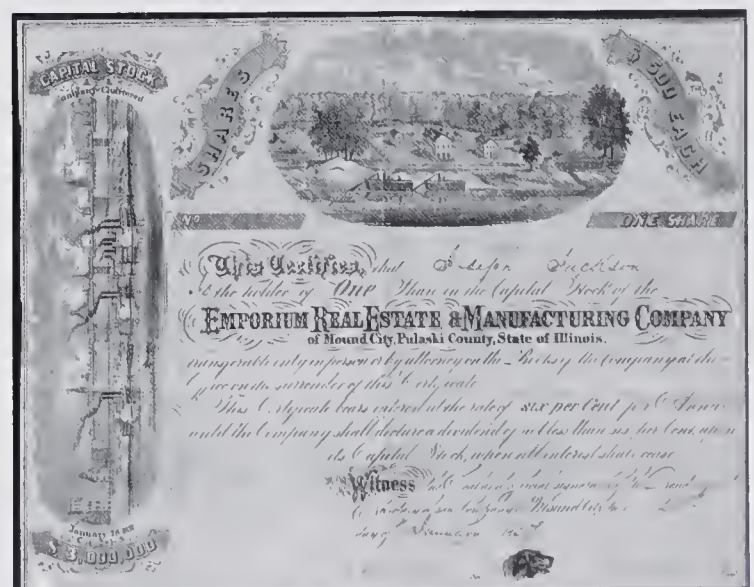 CAPITAL STOCK
Company Chartered
January 18
$ 3,000,000
SHARES
$ 500 EACH
No
ONE SHARE
This Certifies, that Jackson
is the holder of ONE Share in the Capital Stock of the
EMPORIUM REAL ESTATE & MANUFACTURING COMPANY
of Mound City, Pulaski County, State of Illinois.
transferable only in person or by attorney on the Books of the Company at the
on the surrender of this Certificate
This Certificate bears interest at the rate of six per Cent per Annum
until the Company shall declare a dividend of not less than six per Cent. upon
its Capital Stock, when all interest shall cease
Witness
Mound City
day of January